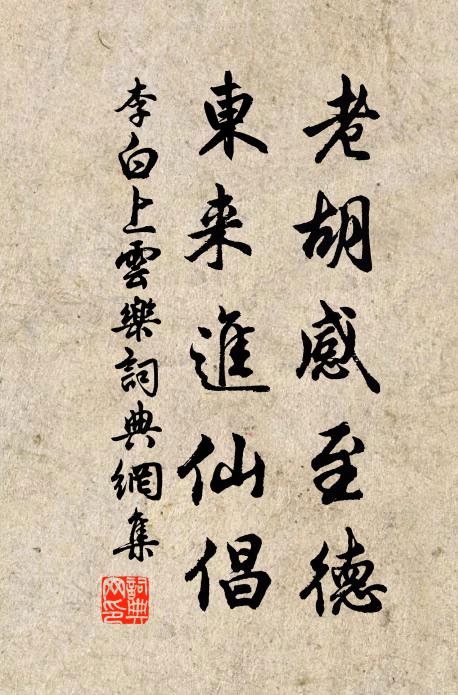 老胡感至德
東来進仙倡
李白上雲樂詞典網集
詞典网印